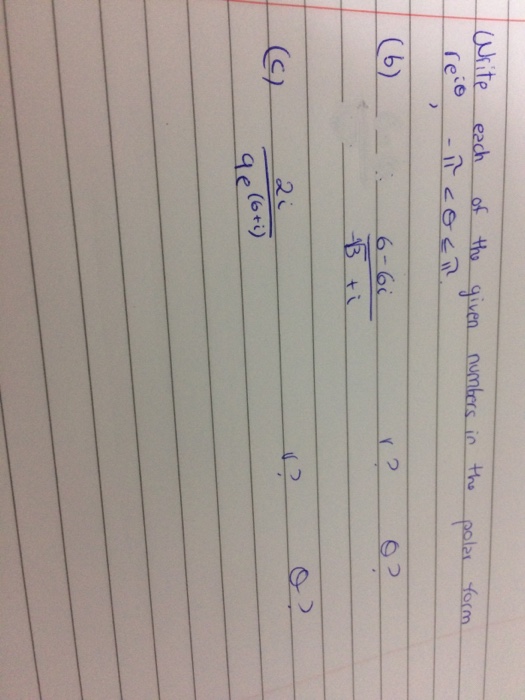 Write each of the given numbers in the polar form
re^{iθ}, -π < θ ≤ π.
(b) \frac{6-6i}{-\sqrt{3}+i} r? θ?
(c) \frac{2i}{9e^{(6+i)}} r? θ?